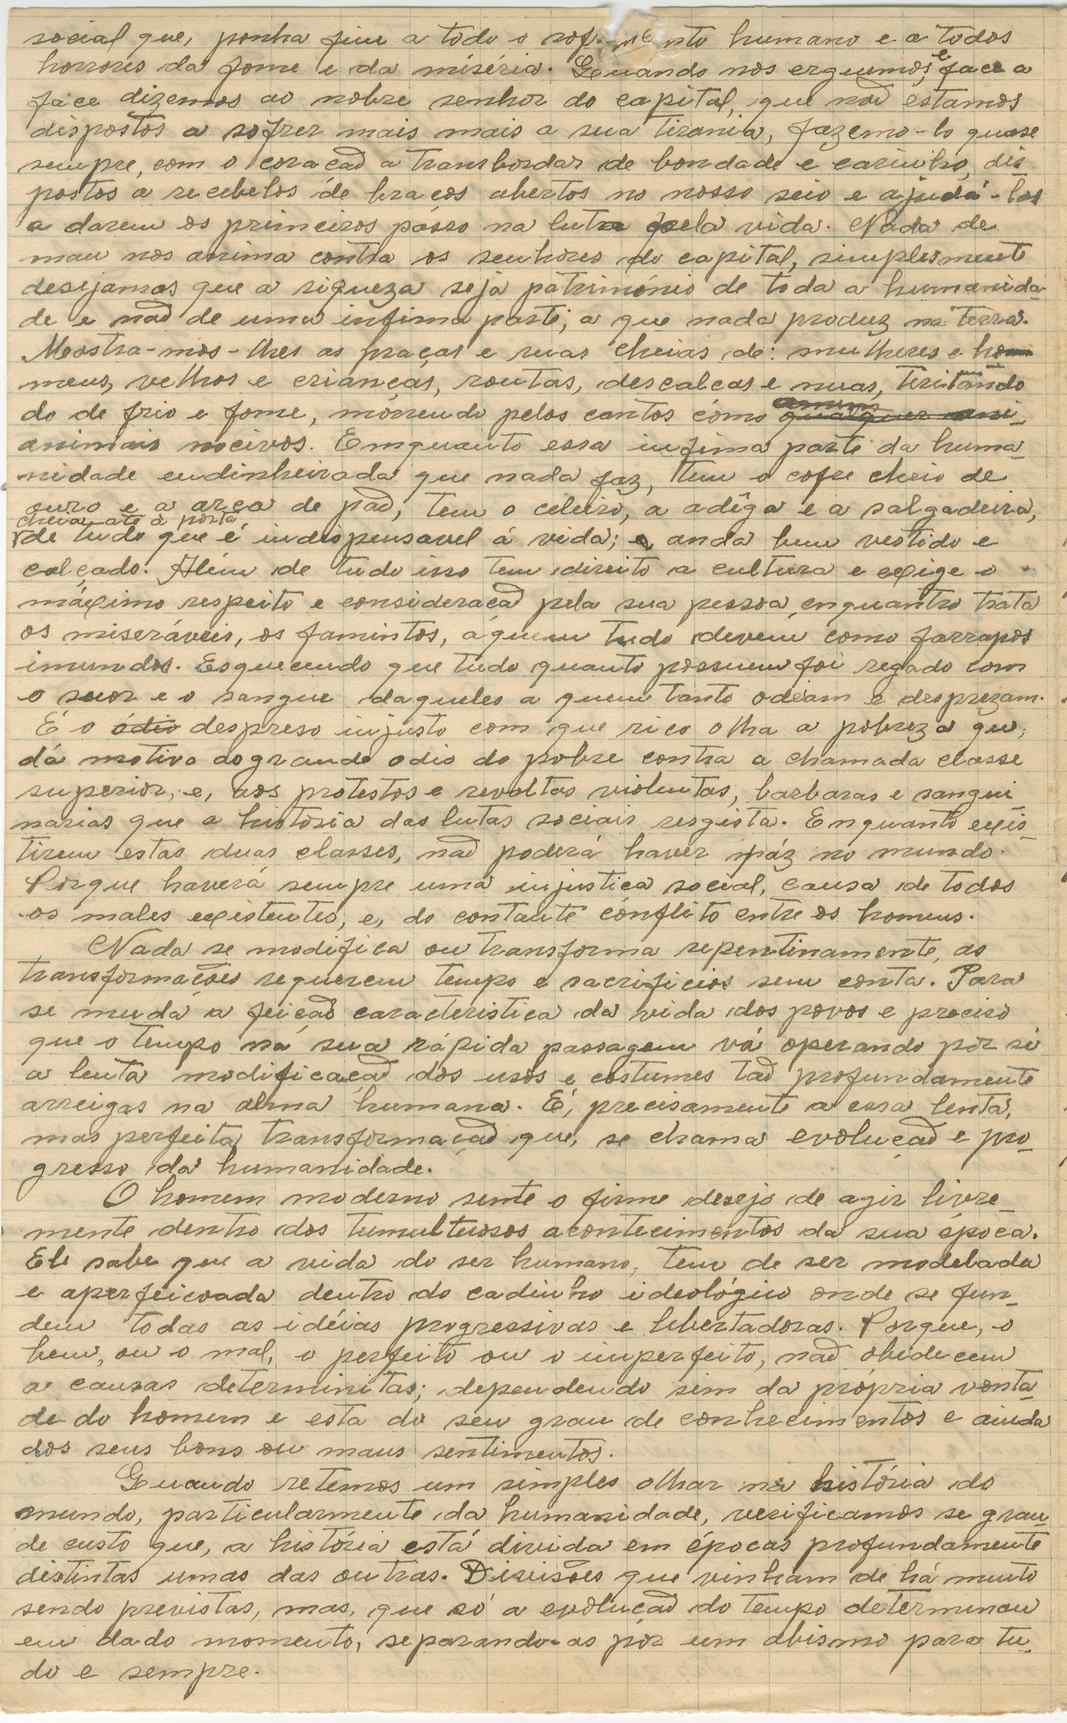 social que, ponha fim a todo o sofrimento humano e a todos
horrores da fome e da miséria. Quando nos erguemos e face a
face dizemos ao nobre senhor do capital, que não estamos
dispostos a sofrer mais mais a sua tirania, fazemo-lo quase
sempre, com o coração a transbordar de bondade e carinho, dis
postos a recebelos de braços abertos no nosso seio e ajudá-los
a darem os primeiros passo na luta pela vida. Nada de
mau nos anima contra os senhores do capital, simplesmente
desejamos que a riqueza seja património de toda a humanida-
de e não de uma infima parte, a que nada produz na terra.
Mostra-mos-lhes as praças e ruas cheias de: mulheres e hom
mens, velhos e crianças, rontas, descalças e nuas, tiritando
do de frio e fome, morrendo pelos cantos como qualquer ani-
animais nocivos. Emquanto essa infima parte da huma-
nidade endinheirada que nada faz, tem o cofre cheio de
ouro e a arca de pão, tem o celeiro, a adêga e a salgadeira,
cheia até à porta
de tudo que é indispensavel á vida; e anda bem vestido e
calçado. Além de tudo isso tem direito a cultura e exige o
máximo respeito e consideração pela sua pessoa enquantro trata
os miseráveis, os famintos, áquem tudo devem como farrapos
imundos. Esquecendo que tudo quanto possuem foi regado com
o suor e o sangue daqueles a quem tanto odeiam e desprezam.
É o ódio despreso injusto com que rico olha a pobreza que,
dá motivo ao grande odio do pobre contra a chamada classe
superior, e, aos protestos e revoltas violentas, barbaras e sangui
narias que a história das lutas sociais resgista. Enquanto exis-
tirem estas duas classes, não poderá haver páz no mundo.
Porque haverá sempre uma injustiça social, causa de todos
os males existentes, e, do contante conflito entre os homens.
Nada se modifica ou transforma repentinamente, as
transformações requerem tempo e sacrificios sem conta. Para
se muda a feição caracteristica da vida dos povos e preciso
que o tempo na sua rápida passagem vá operando por si
a lenta modificação dos usos e costumes tão profundamente
arreigas na alma humana. É, precisamente a essa lenta,
mas perfeita transformação que, se chama evolução e pro-
gresso da humanidade.
O homem moderno sente o firme desejo de agir livre-
mente dentro dos tumultuosos acontecimentos da sua época.
Ele sabe que a vida do ser humano, tem de ser modelada
e aperfeiçoada dentro do cadinho ideológico onde se fun-
dem todas as idéias progressivas e libertadoras. Porque, o
bem, ou o mal, o perfeito ou o imperfeito, não obedecem
a causas determinitas; dependendo sim da própria vonta-
de do homem e esta do seu grau de conhecimentos e ainda
dos seus bons ou maus sentimentos.
Quando retemos um simples olhar na história do
mundo, particularmente da humanidade, verificamos se gran-
de custo que, a história está divida em épocas profundamente
distintas umas das outras. Divisões que vinham de há muito
sendo previstas, mas, que só a evolução do tempo determinou
em dado momento, separando-as por um abismo para tu-
do e sempre.